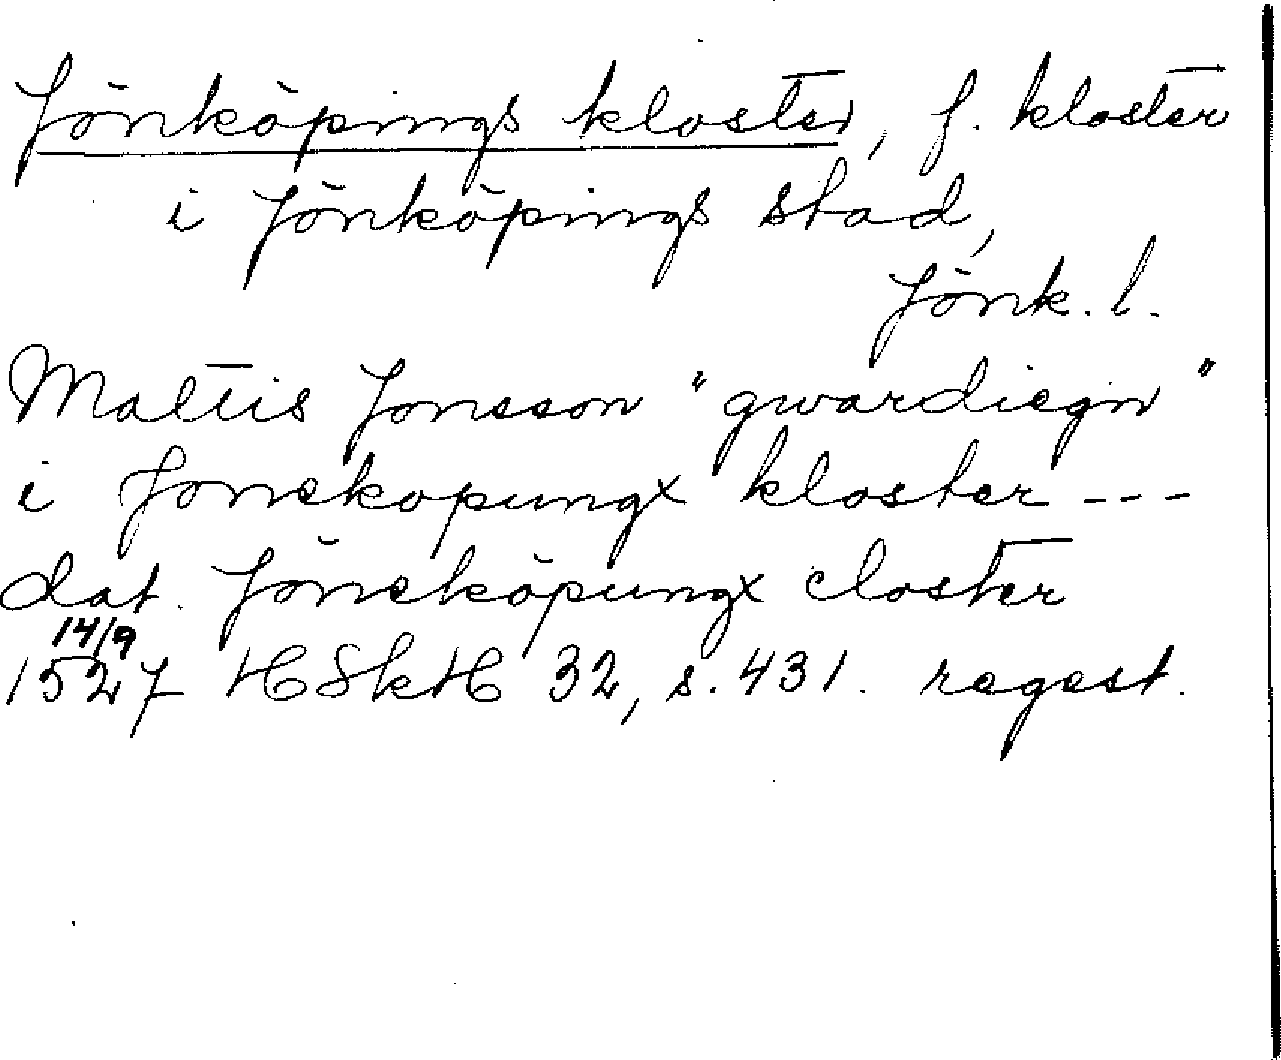 Jönköpings kloster, f. kloster
i Jönköpings stad,
Jönk. l.
Mattis Jonsson "gwardiegn"
i Jonekopungx kloster ---
dat. Jöneköpungx closter
14/9
1527 HSkH 32, s. 431. regest.